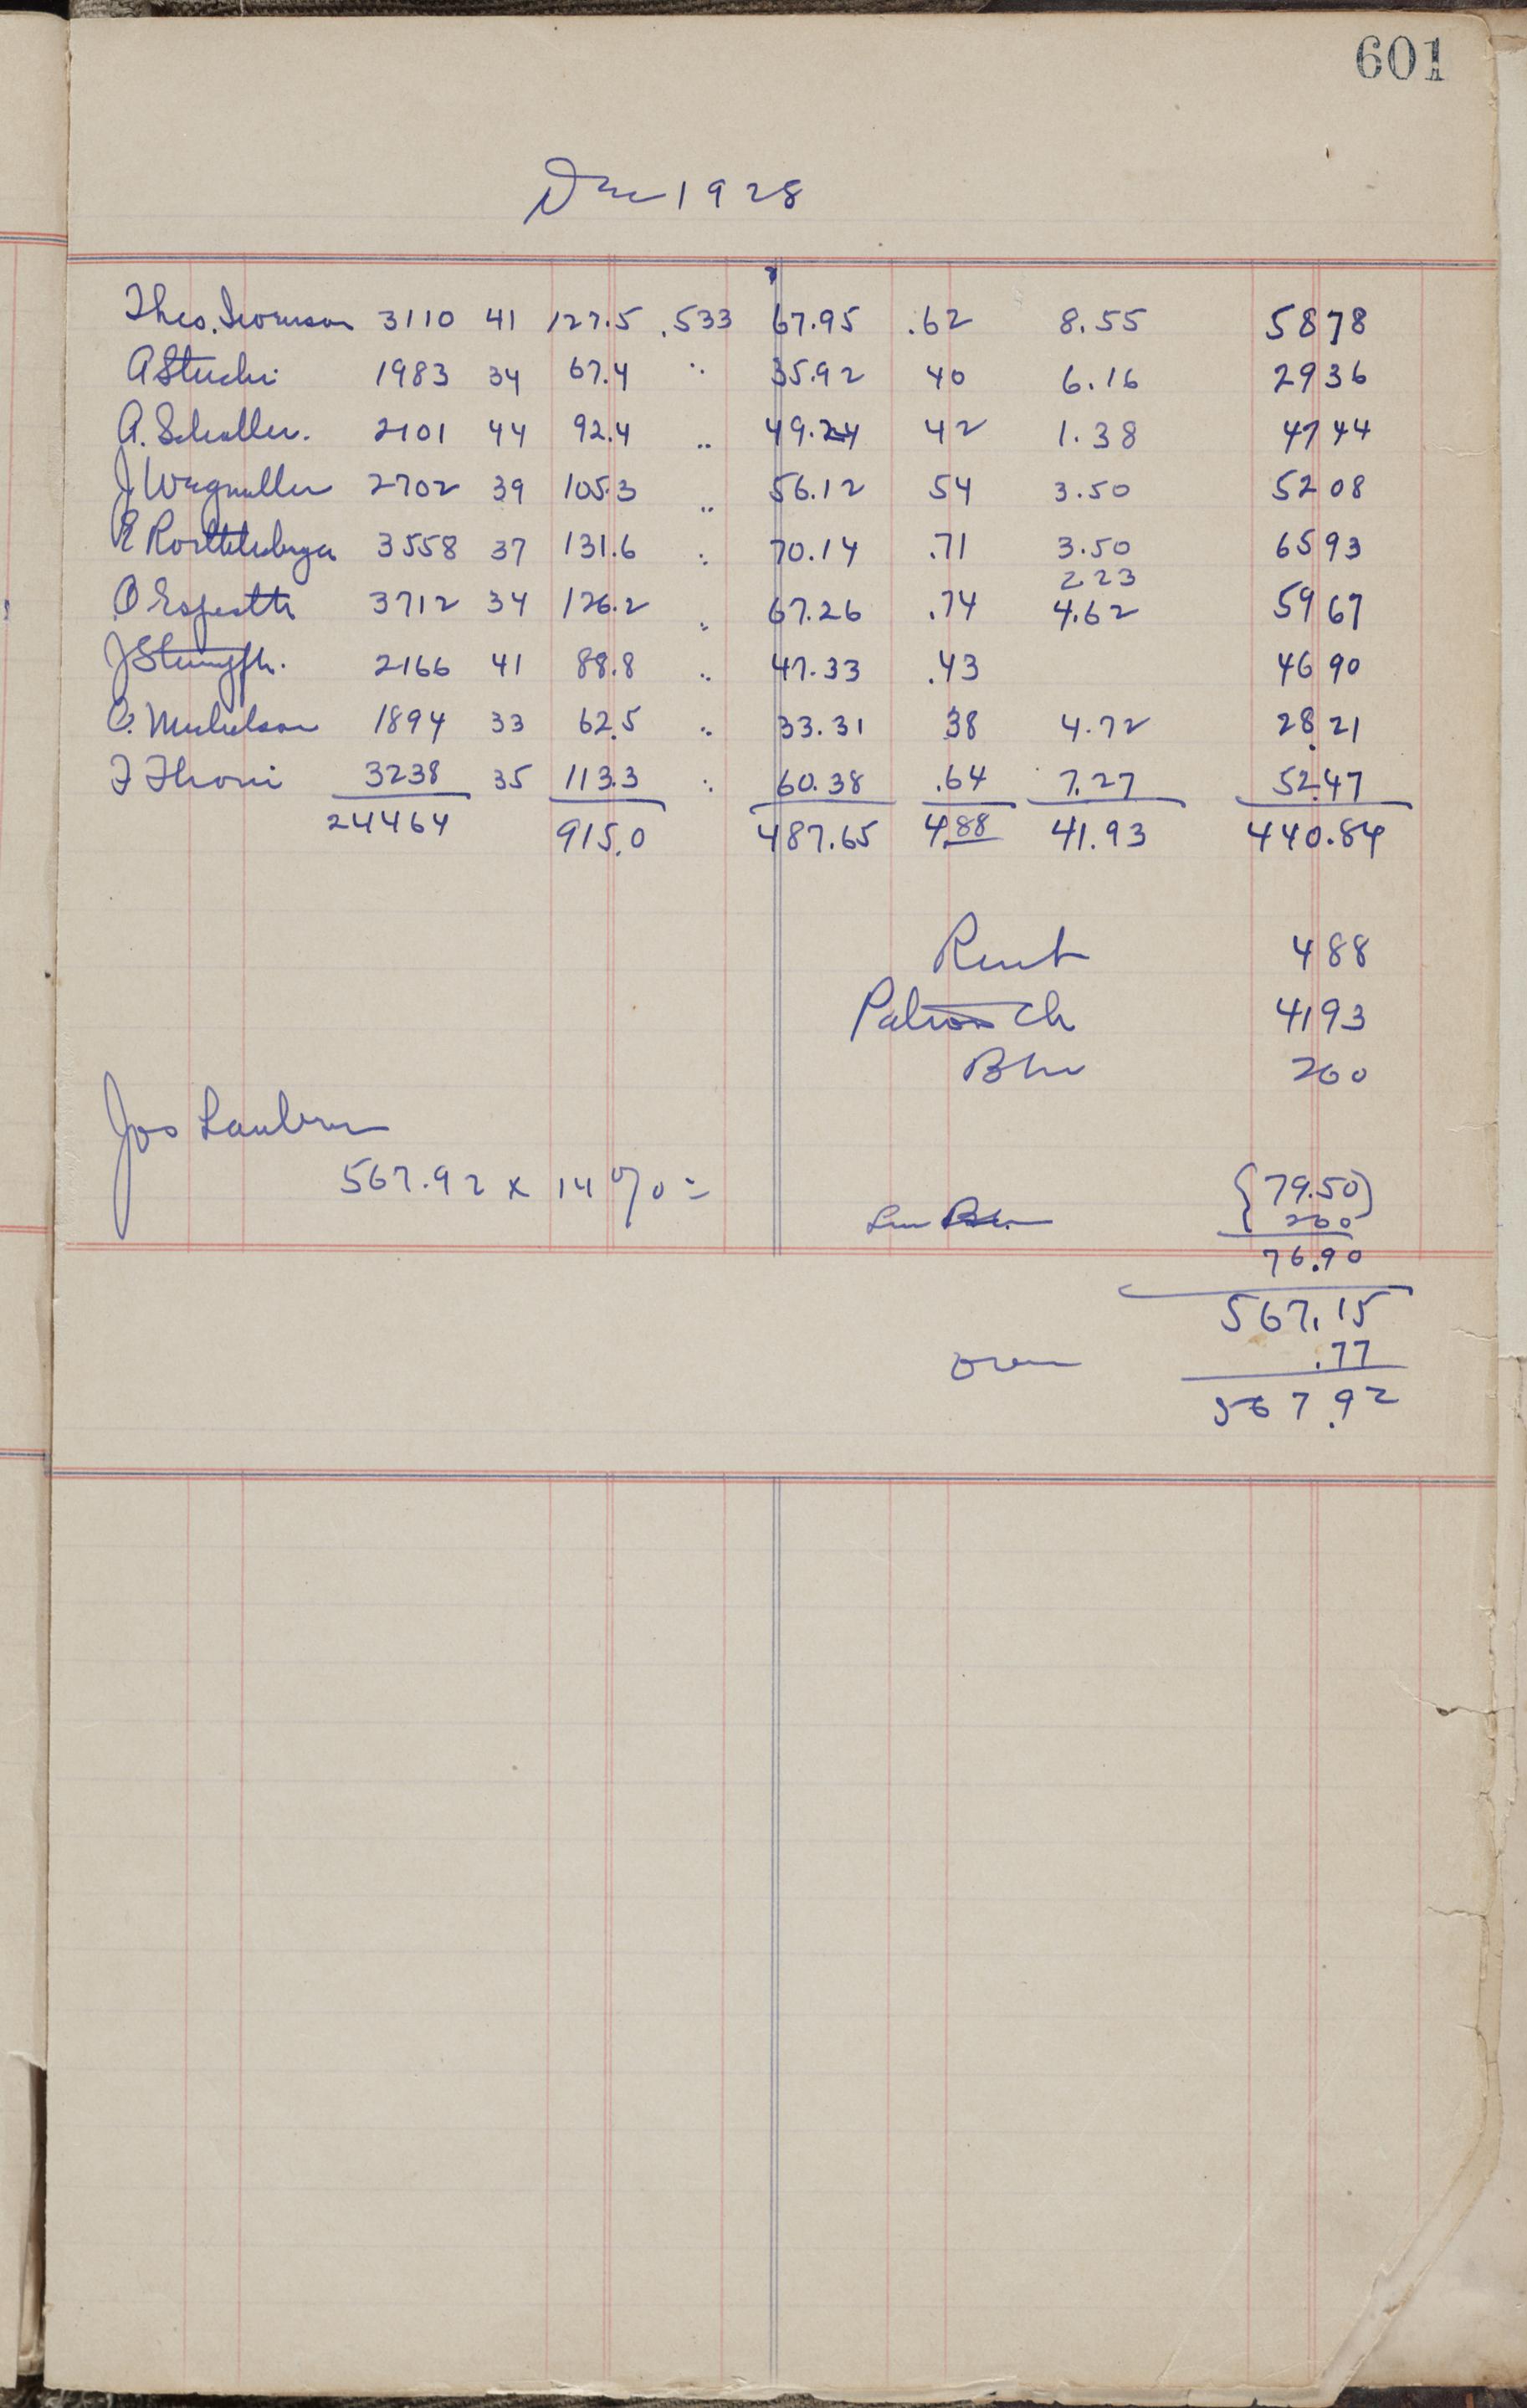 601
Dec 1928
Theo. 3110 41 127.5 .533 67.95 .62 8.55 58 78
A Stucki 1983 34 67.4 " 35.92 40 6.16 29 36
A. Schaller. 2101 44 92.4 " 49.24 42 1.38 47 44
J Wagmuller 2702 39 105.3 " 56.12 54 3.50 52 08
E 3558 37 131.6 " 70.14 .71 3.50 65 93
2 23
O Espeseth 3712 34 126.2 " 67.26 .74 4.62 59 67
J Stumpfh. 2166 41 88.8 " 47.33 .43 46 90
C. Michelson 1894 33 62.5 " 33.31 38 4.72 28.21
F Thoni 3238 35 113.3 " 60.38 .64 7.27 52.47
24464 915.0 487.65 4.88 41.93 440.84
Rent 4 88
Patrons Ch 41 93
2 60
Jos
567.92 x 14 % = {79.50}
2 60
76.90
567.15
over .77
567.92